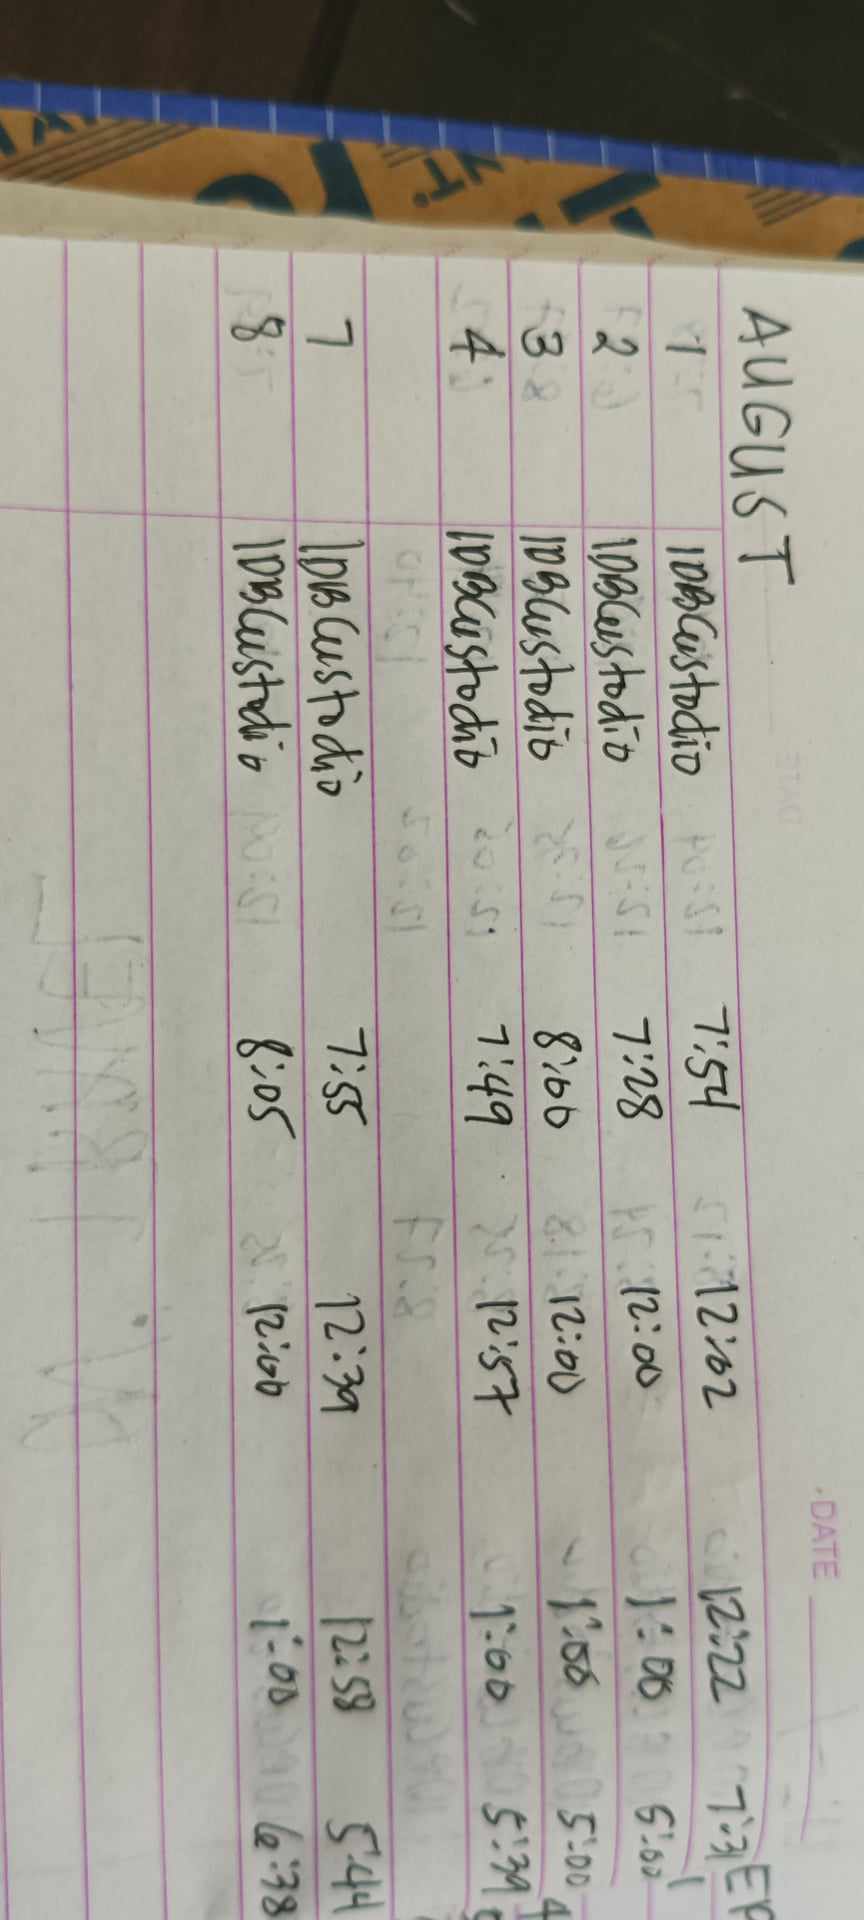 DATE
AUGUST
1 IDBCustodio 7:54 12:02 12:22 7:31
2 IDBCustodio 7:28 12:00 1:00 5:00
3 IDBCustodio 8:00 12:00 1:00 5:00
4 IDBCustodio 7:49 12:57 1:00 5:39
7 IDBCustodio 7:55 12:39 12:58 5:44
8 IDBCustodio 8:05 12:00 1:00 6:38